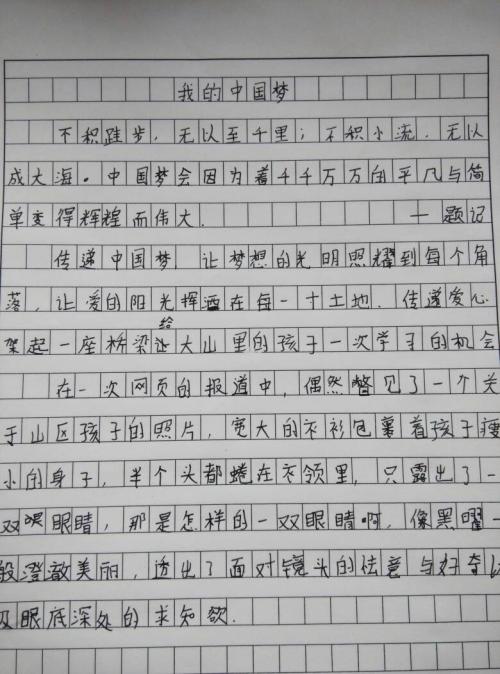 我的中国梦
不积跬步，无以至千里；不积小流，无以
成大海。中国梦会因为着千千万万的平凡与简
单变得辉煌而伟大。 —题记
传递中国梦 让梦想的光明照耀到每个角
落，让爱的阳光挥洒在每一寸土地．传递爱心
架起一座桥梁给大山里的孩子一次学习的机会
在一次网页的报道中，偶然瞥见了一个关
于山区孩子的照片，宽大的衣衫包裹着孩子瘦
小的身子，半个头都蜷在衣领里，只露出了一
双眼睛，那是怎样的一双眼睛啊，像黑曜一
般澄澈美丽，透出了面对镜头的怯意与好奇以
及眼底深处的求知欲．